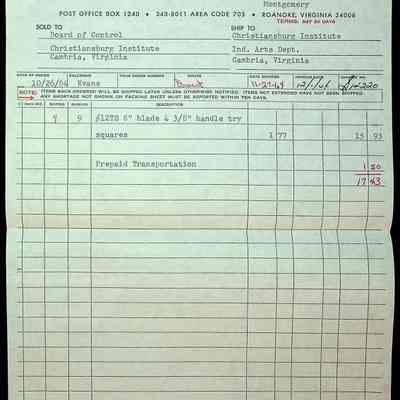 Montgomery
POST OFFICE BOX 1240 • 343-8011 AREA CODE 703 • ROANOKE, VIRGINIA 24006
TERMS: NET 30 DAYS
SOLD TO
SHIP TO
Board of Control
Christiansburg Institute
Christiansburg Institute
Ind. Arts Dept.
Cambria, Virginia
Cambria, Virginia
DATE OF ORDER SALESMAN YOUR ORDER NUMBER ROUTE DATE SHIPPED INVOICE DATE
10/26/64 Evans 11-27-64
NOTE: ITEMS BACK ORDERED WILL BE SHIPPED LATER UNLESS OTHERWISE NOTIFIED. ITEMS NOT EXTENDED HAVE NOT BEEN SHIPPED.
ANY SHORTAGE NOT SHOWN ON PACKING SHEET MUST BE REPORTED WITHIN TEN DAYS.
DESCRIPTION
9 9 #12TS 6" blade 4 3/8" handle try
squares 1 77 15 93
Prepaid Transportation 1 50
17 43